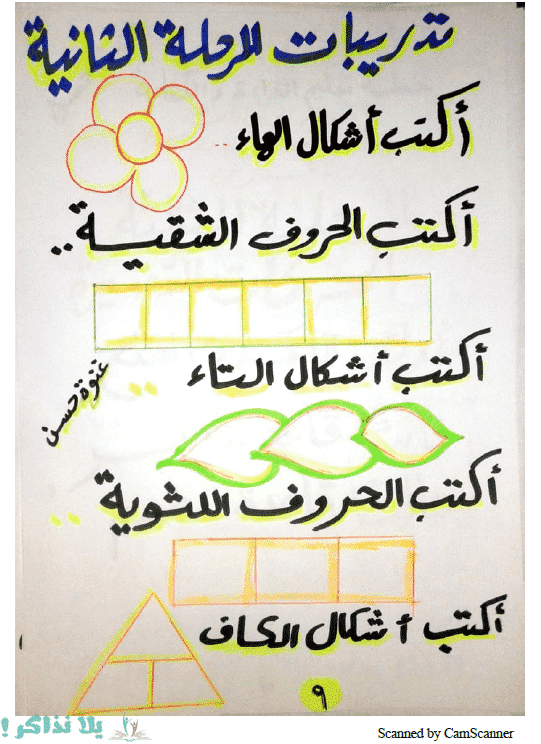 تدريبات المرحلة الثانية
أكتب أشكال الهاء ..
أكتب الحروف الشقية ..
أكتب أشكال التاء ..
غنوة حسن
أكتب الحروف اللثوية ..
أكتب أشكال الكاف
٩
يلا نذاكر !
Scanned by CamScanner